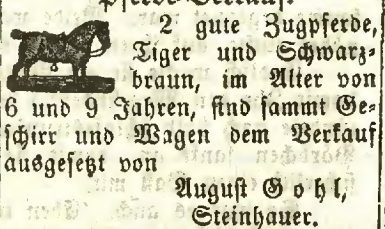 2 gute Zugpferde,
Tiger und Schwarz-
braun, im Alter von
6 und 9 Jahren, sind sammt Ge-
schirr und Wagen dem Verkauf
ausgesetzt von
August Gohl,
Steinhauer.